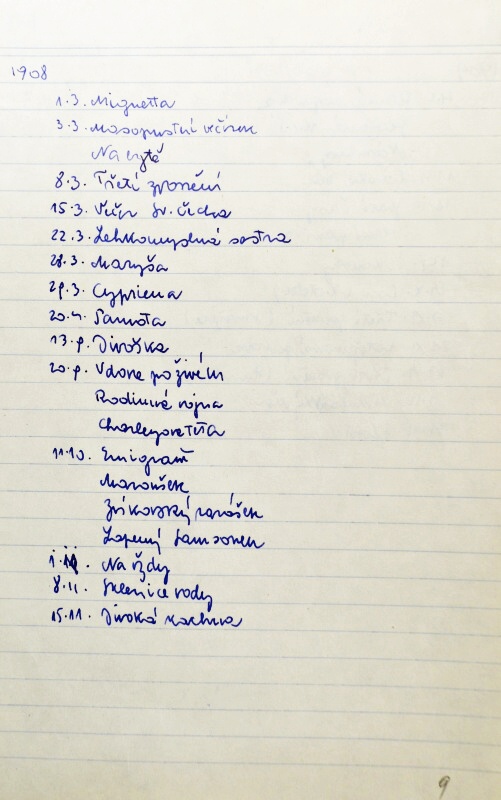 1908
1.3. Mignetta
3.3. Masopustní věčírek
Na vytě
8.3. Třetí zvonění
15.3. Večer Sv. Čecha
22.3. Lehkomyslná sestra
28.3. Maryša
29.3. Cypriena
20.4. Samota
13.9. Divoška
20.9. Vdova po živém
Rodinná vojna
Charleyova teta
11.10. Emigrant
Marousek
Zvíkovský rarášek
Zapený Samsonem
1.11. Na vždy
8.11. Sklenice vody
15.11. Divoká kachna
9